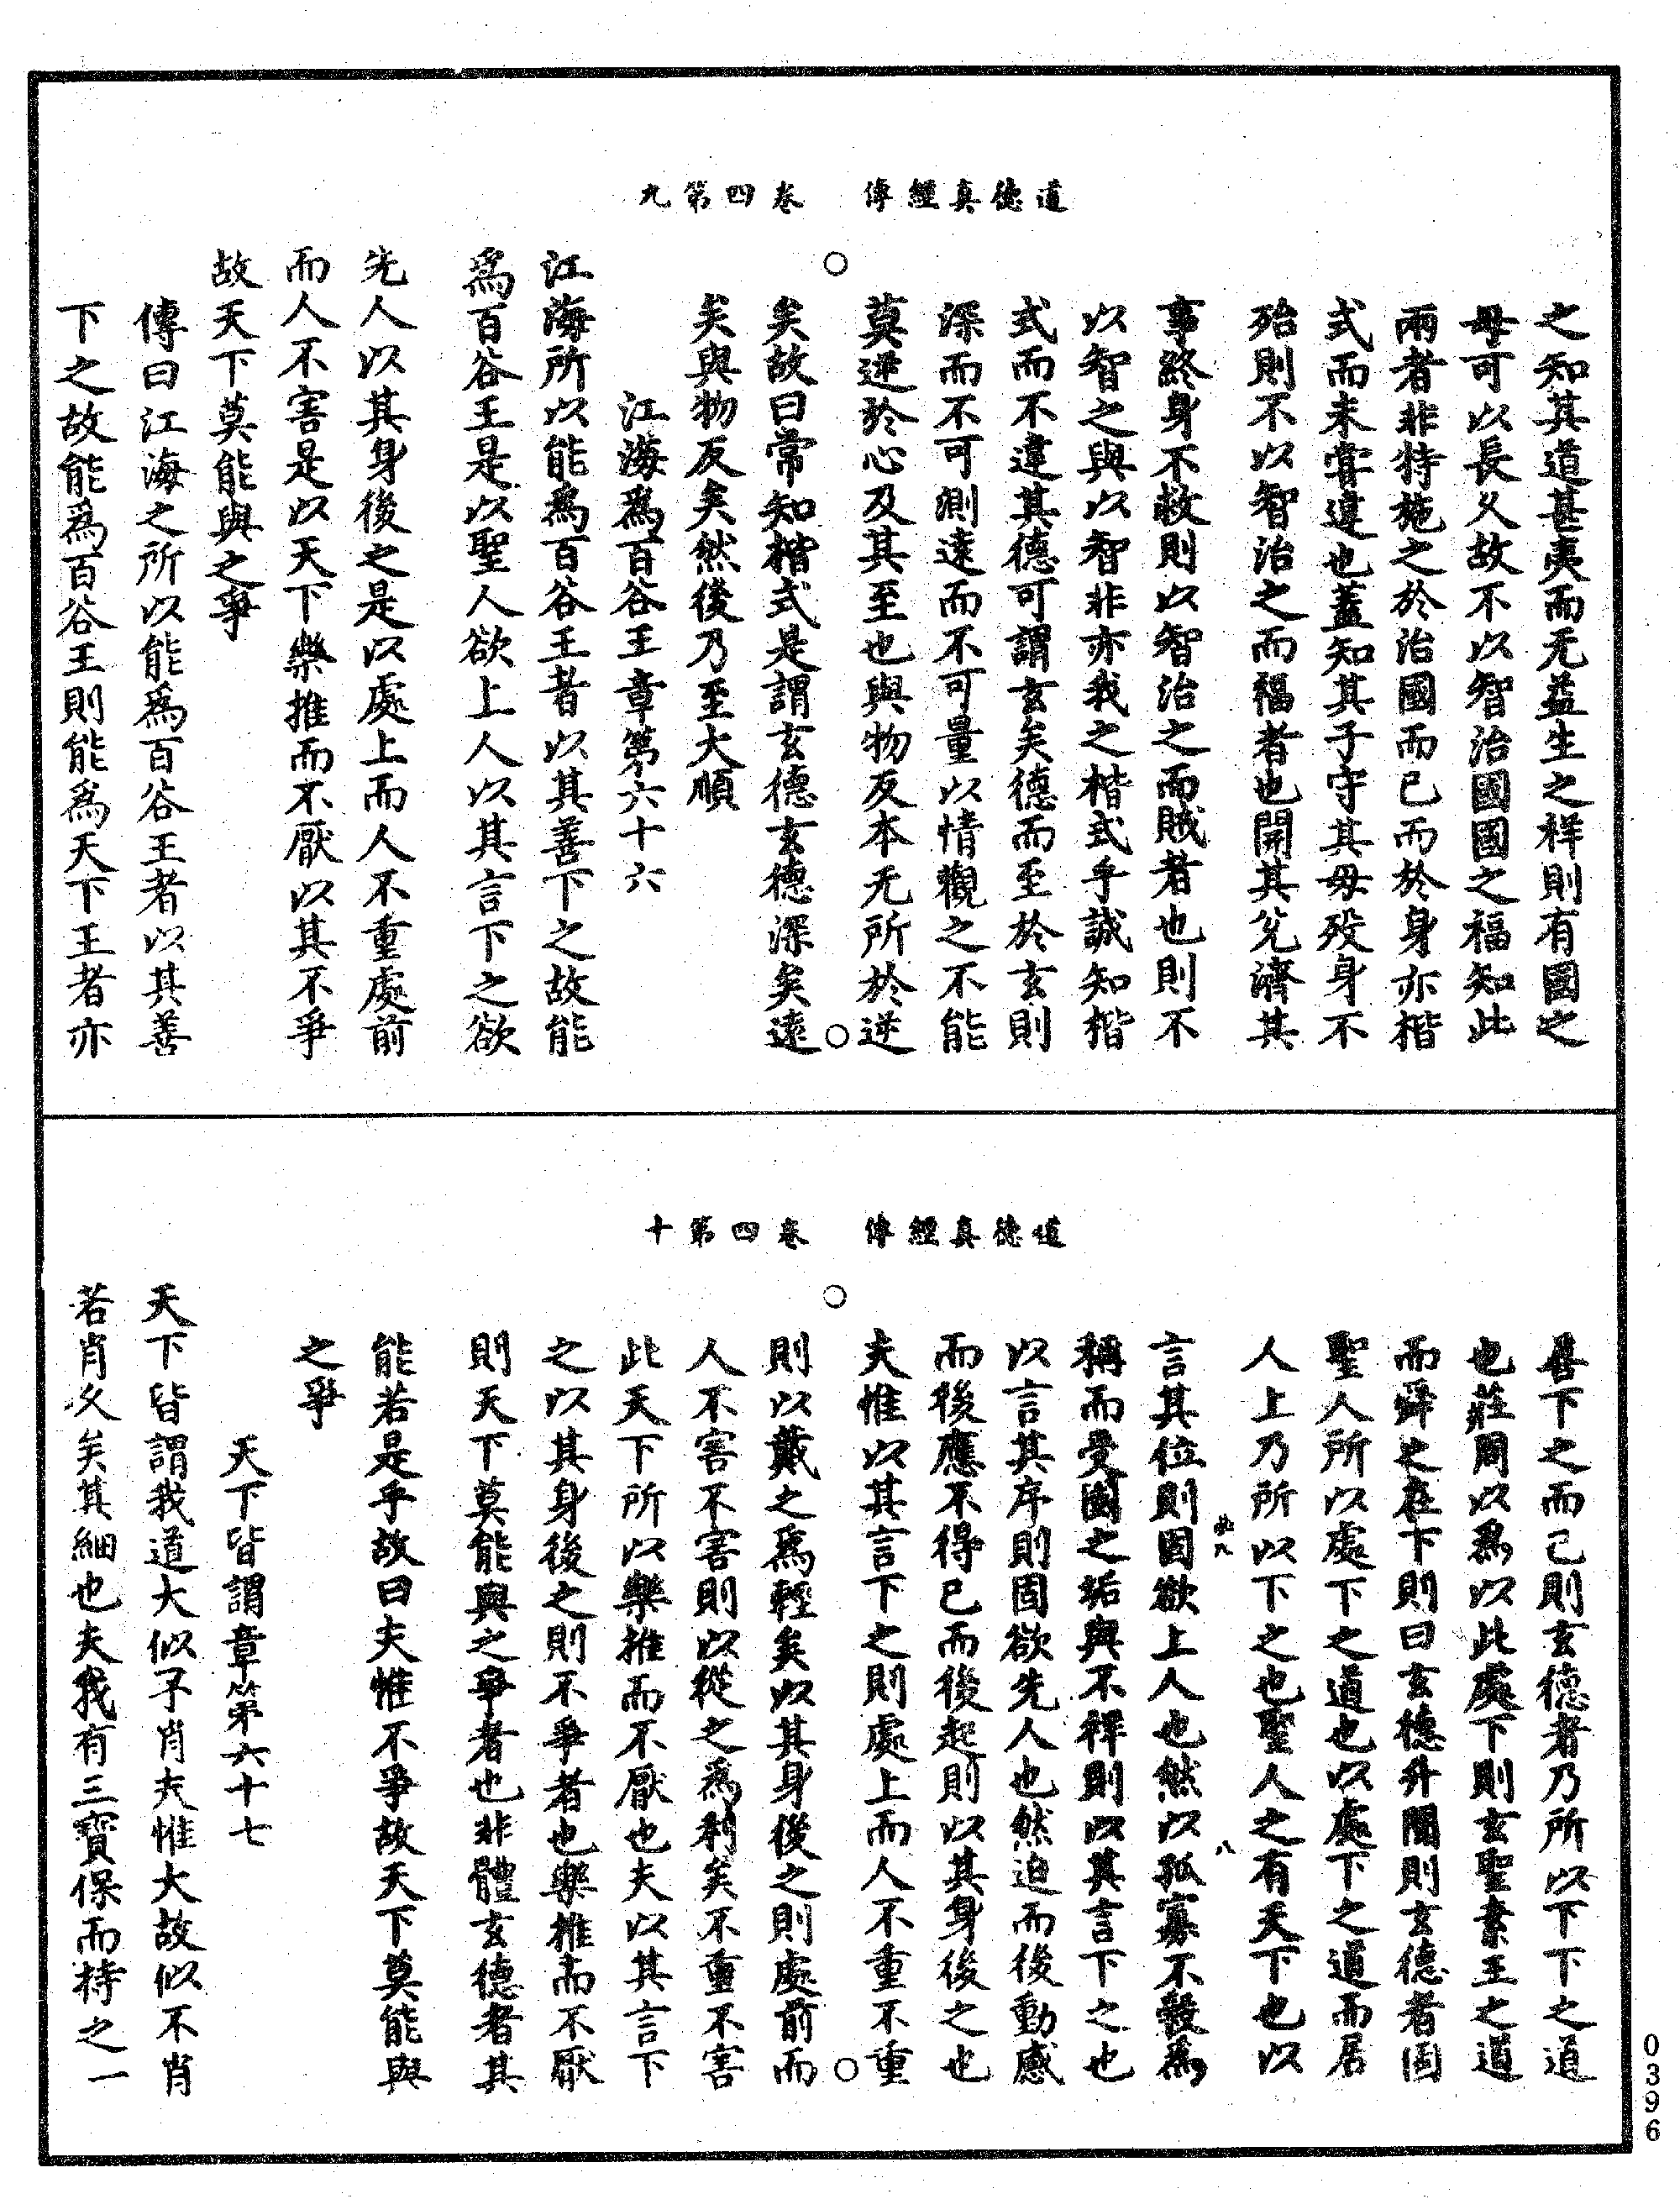 道德真經傳　卷四第九
之知其道甚夷而无益生之祥則有國之
母可以長久故不以智治國國之福知此
兩者非特施之於治國而已而於身亦楷
式而未嘗違也蓋知其子守其母殁身不
殆則不以智治之而福者也開其兌濟其
事終身不救則以智治之而賊者也則不
以智之與以智非亦我之楷式乎誠知楷
式而不違其德可謂玄矣德而至於玄則
深而不可測遠而不可量以情觀之不能
莫逆於心及其至也與物反本无所於逆
矣故曰常知楷式是謂玄德玄德深矣遠
矣與物反矣然後乃至大順
江海為百谷王章第六十六
江海所以能為百谷王者以其善下之故能
為百谷王是以聖人欲上人以其言下之欲
先人以其身後之是以處上而人不重處前
而人不害是以天下樂推而不厭以其不爭
故天下莫能與之爭
傳曰江海之所以能為百谷王者以其善
下之故能為百谷王則能為天下王者亦
道德真經傳　卷四第十
善下之而已則玄德者乃所以下下之道
也莊周以為以此處下則玄聖素王之道
而舜之在下則曰玄德升聞則玄德者固
聖人所以處下之道也以處下之道而居
人上乃所以下之也聖人之有天下也以
言其位則固欲上人也然以孤寡不穀為
稱而受國之垢與不祥則以其言下之也
以言其序則固欲先人也然迫而後動感
而後應不得已而後起則以其身後之也
夫惟以其言下之則處上而人不重不重
則以戴之為輕矣以其身後之則處前而
人不害不害則以從之為利矣不重不害
此天下所以樂推而不厭也夫以其言下
之以其身後之則不爭者也樂推而不厭
則天下莫能與之爭者也非體玄德者其
能若是乎故曰夫惟不爭故天下莫能與
之爭
天下皆謂章第六十七
天下皆謂我道大似不肖夫惟大故似不肖
若肖久矣其細也夫我有三寶保而持之一
八
0396